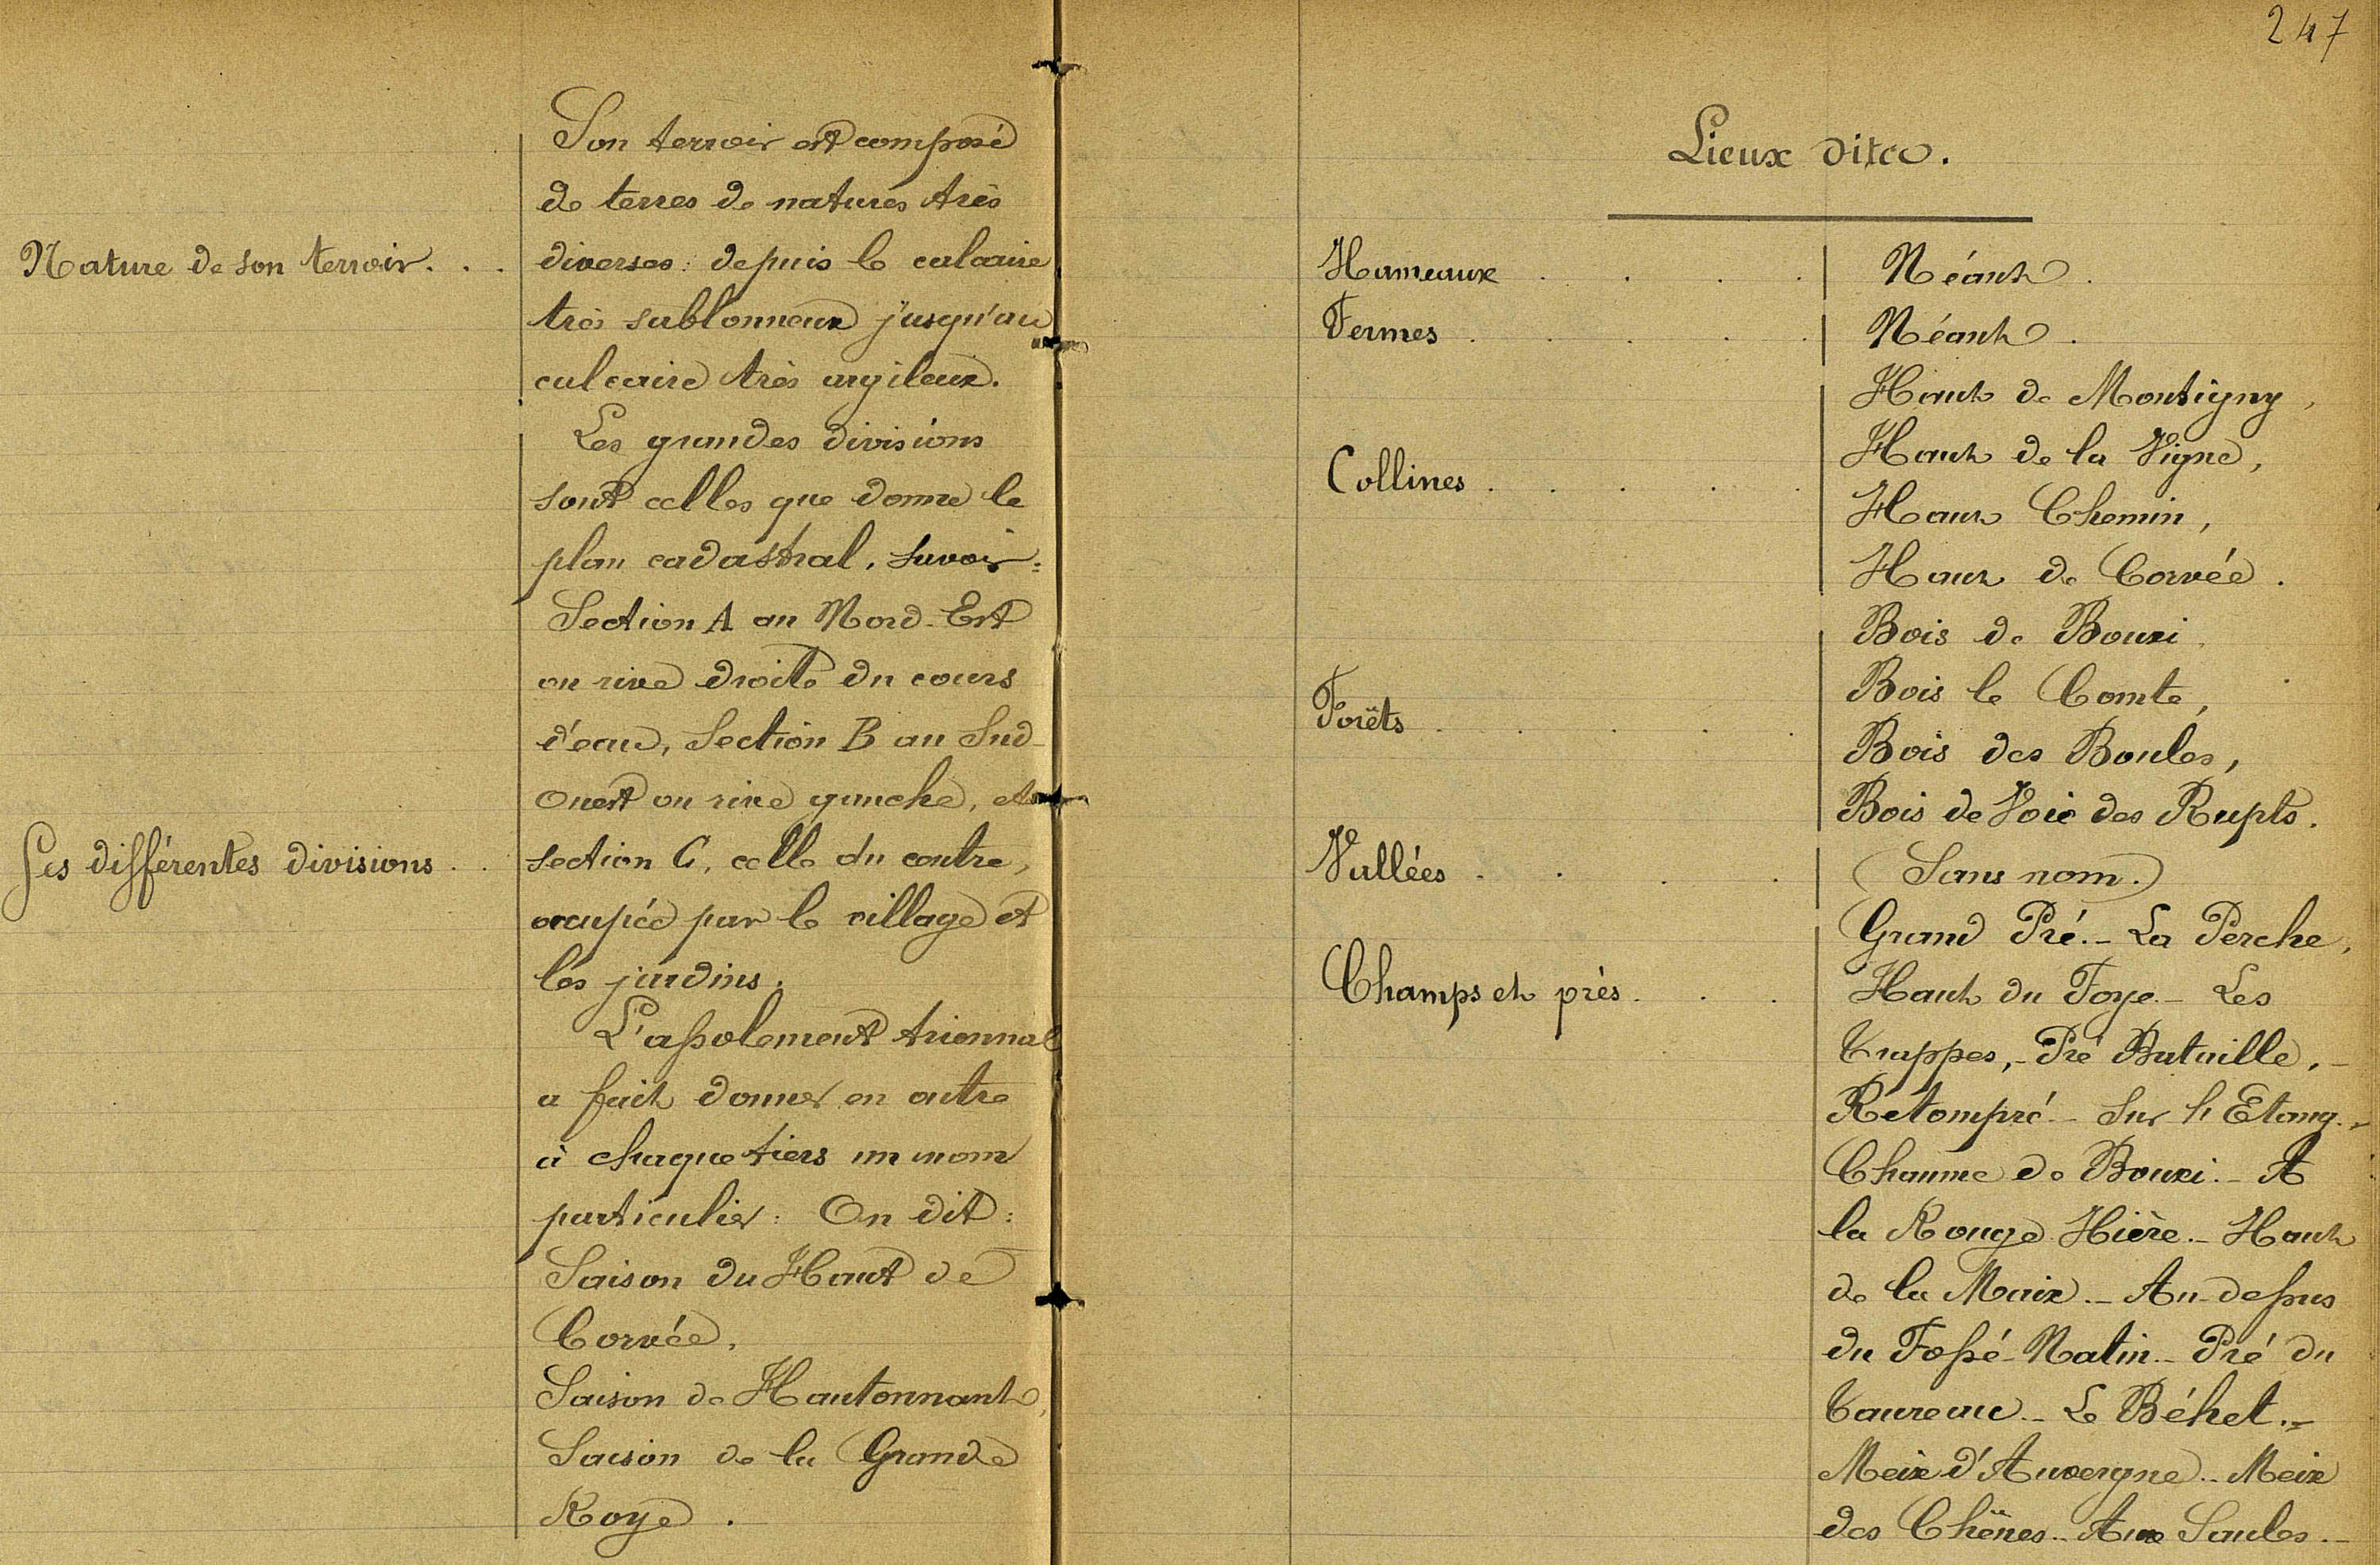 Son terroir est composé
de terres de natures très
Nature de son terroir. . . diverses : depuis le calcaire
très sablonneux jusqu'au
calcaire très argileux.
Les grandes divisions
sont celles que donne le
plan cadastral, savoir :
Section A au Nord-Est
ou rive droite du cours
d'eau, Section B au Sud-
Ouest ou rive gauche, et
Ses différentes divisions . . section C, celle du centre,
occupée par le village et
les jardins.
L'assolement triennal
a fait donner en outre
à chaque tiers un nom
particulier : On dit :
Saison du Haut de
Corvée,
Saison de Hautonnant,
Saison de la Grande
Roye.
247
Lieux dits.
Hameaux . . . . Néant.
Fermes . . . . . Néant.
Haut de Montigny,
Haut de la Vigne,
Collines . . . . . Haut Chemin,
Haut de Corvée.
Bois de Bouxi,
Bois le Comte,
Forêts . . . . . Bois des Boules,
Bois de Voie des Rupts.
Vallées . . . . (Sans nom.)
Grand Pré. - La Perche,
Champs et près . . . Haut du Foye - Les
Trappes, - Pré Bataille. -
Rétompré - Sur l'Etang. -
Chaume de Bouxi. - A
la Rouge Hière. - Haut
de la Maix. - Au-dessus
du Fossé-Matin. - Pré du
Taureau. - Le Béhet. -
Meix d'Auvergne. - Meix
des Chênes. - Aux Saules. -